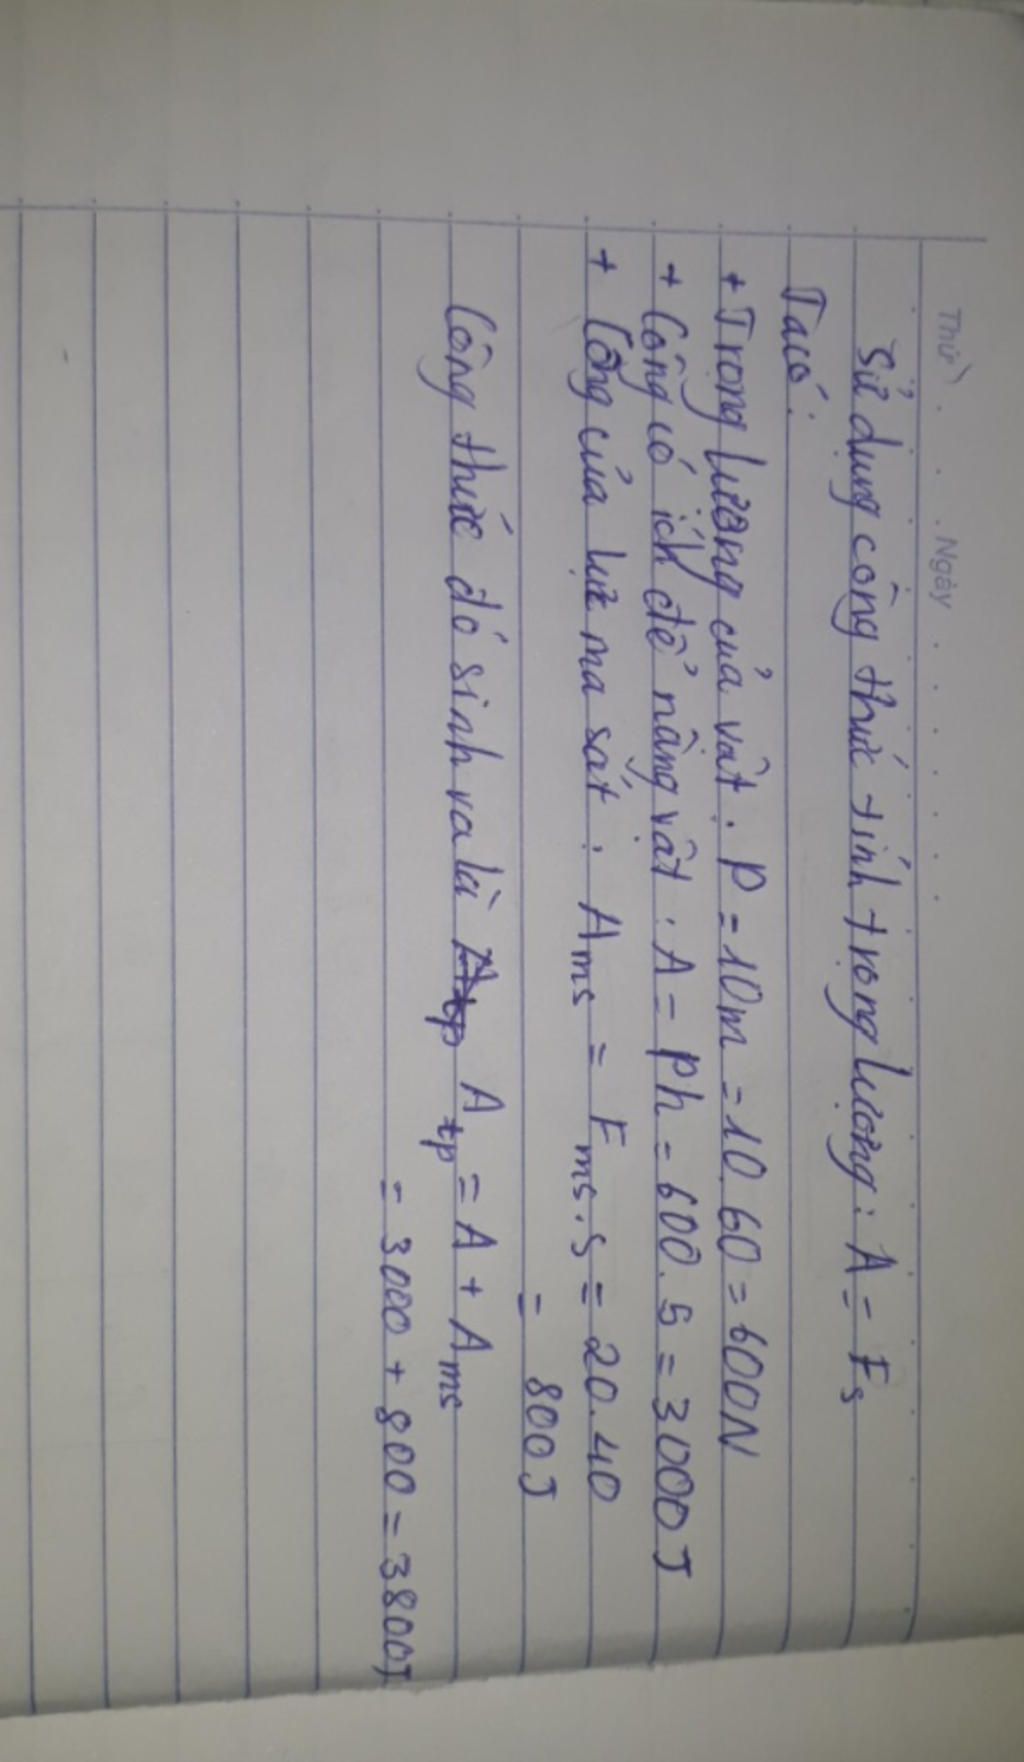 Thứ . . . Ngày . . . . . .
Sử dụng công thức tính trọng lượng: A = Fs
Ta có:
+ Trọng lượng của vật: P = 10m = 10.60 = 600N
+ Công có ích để nâng vật: A = Ph = 600.5 = 3000J
+ Công của lực ma sát: Ams = Fms.s = 20.40
= 800J
Công thức đó sinh ra là Atp = A + Ams
= 3000 + 800 = 3800J